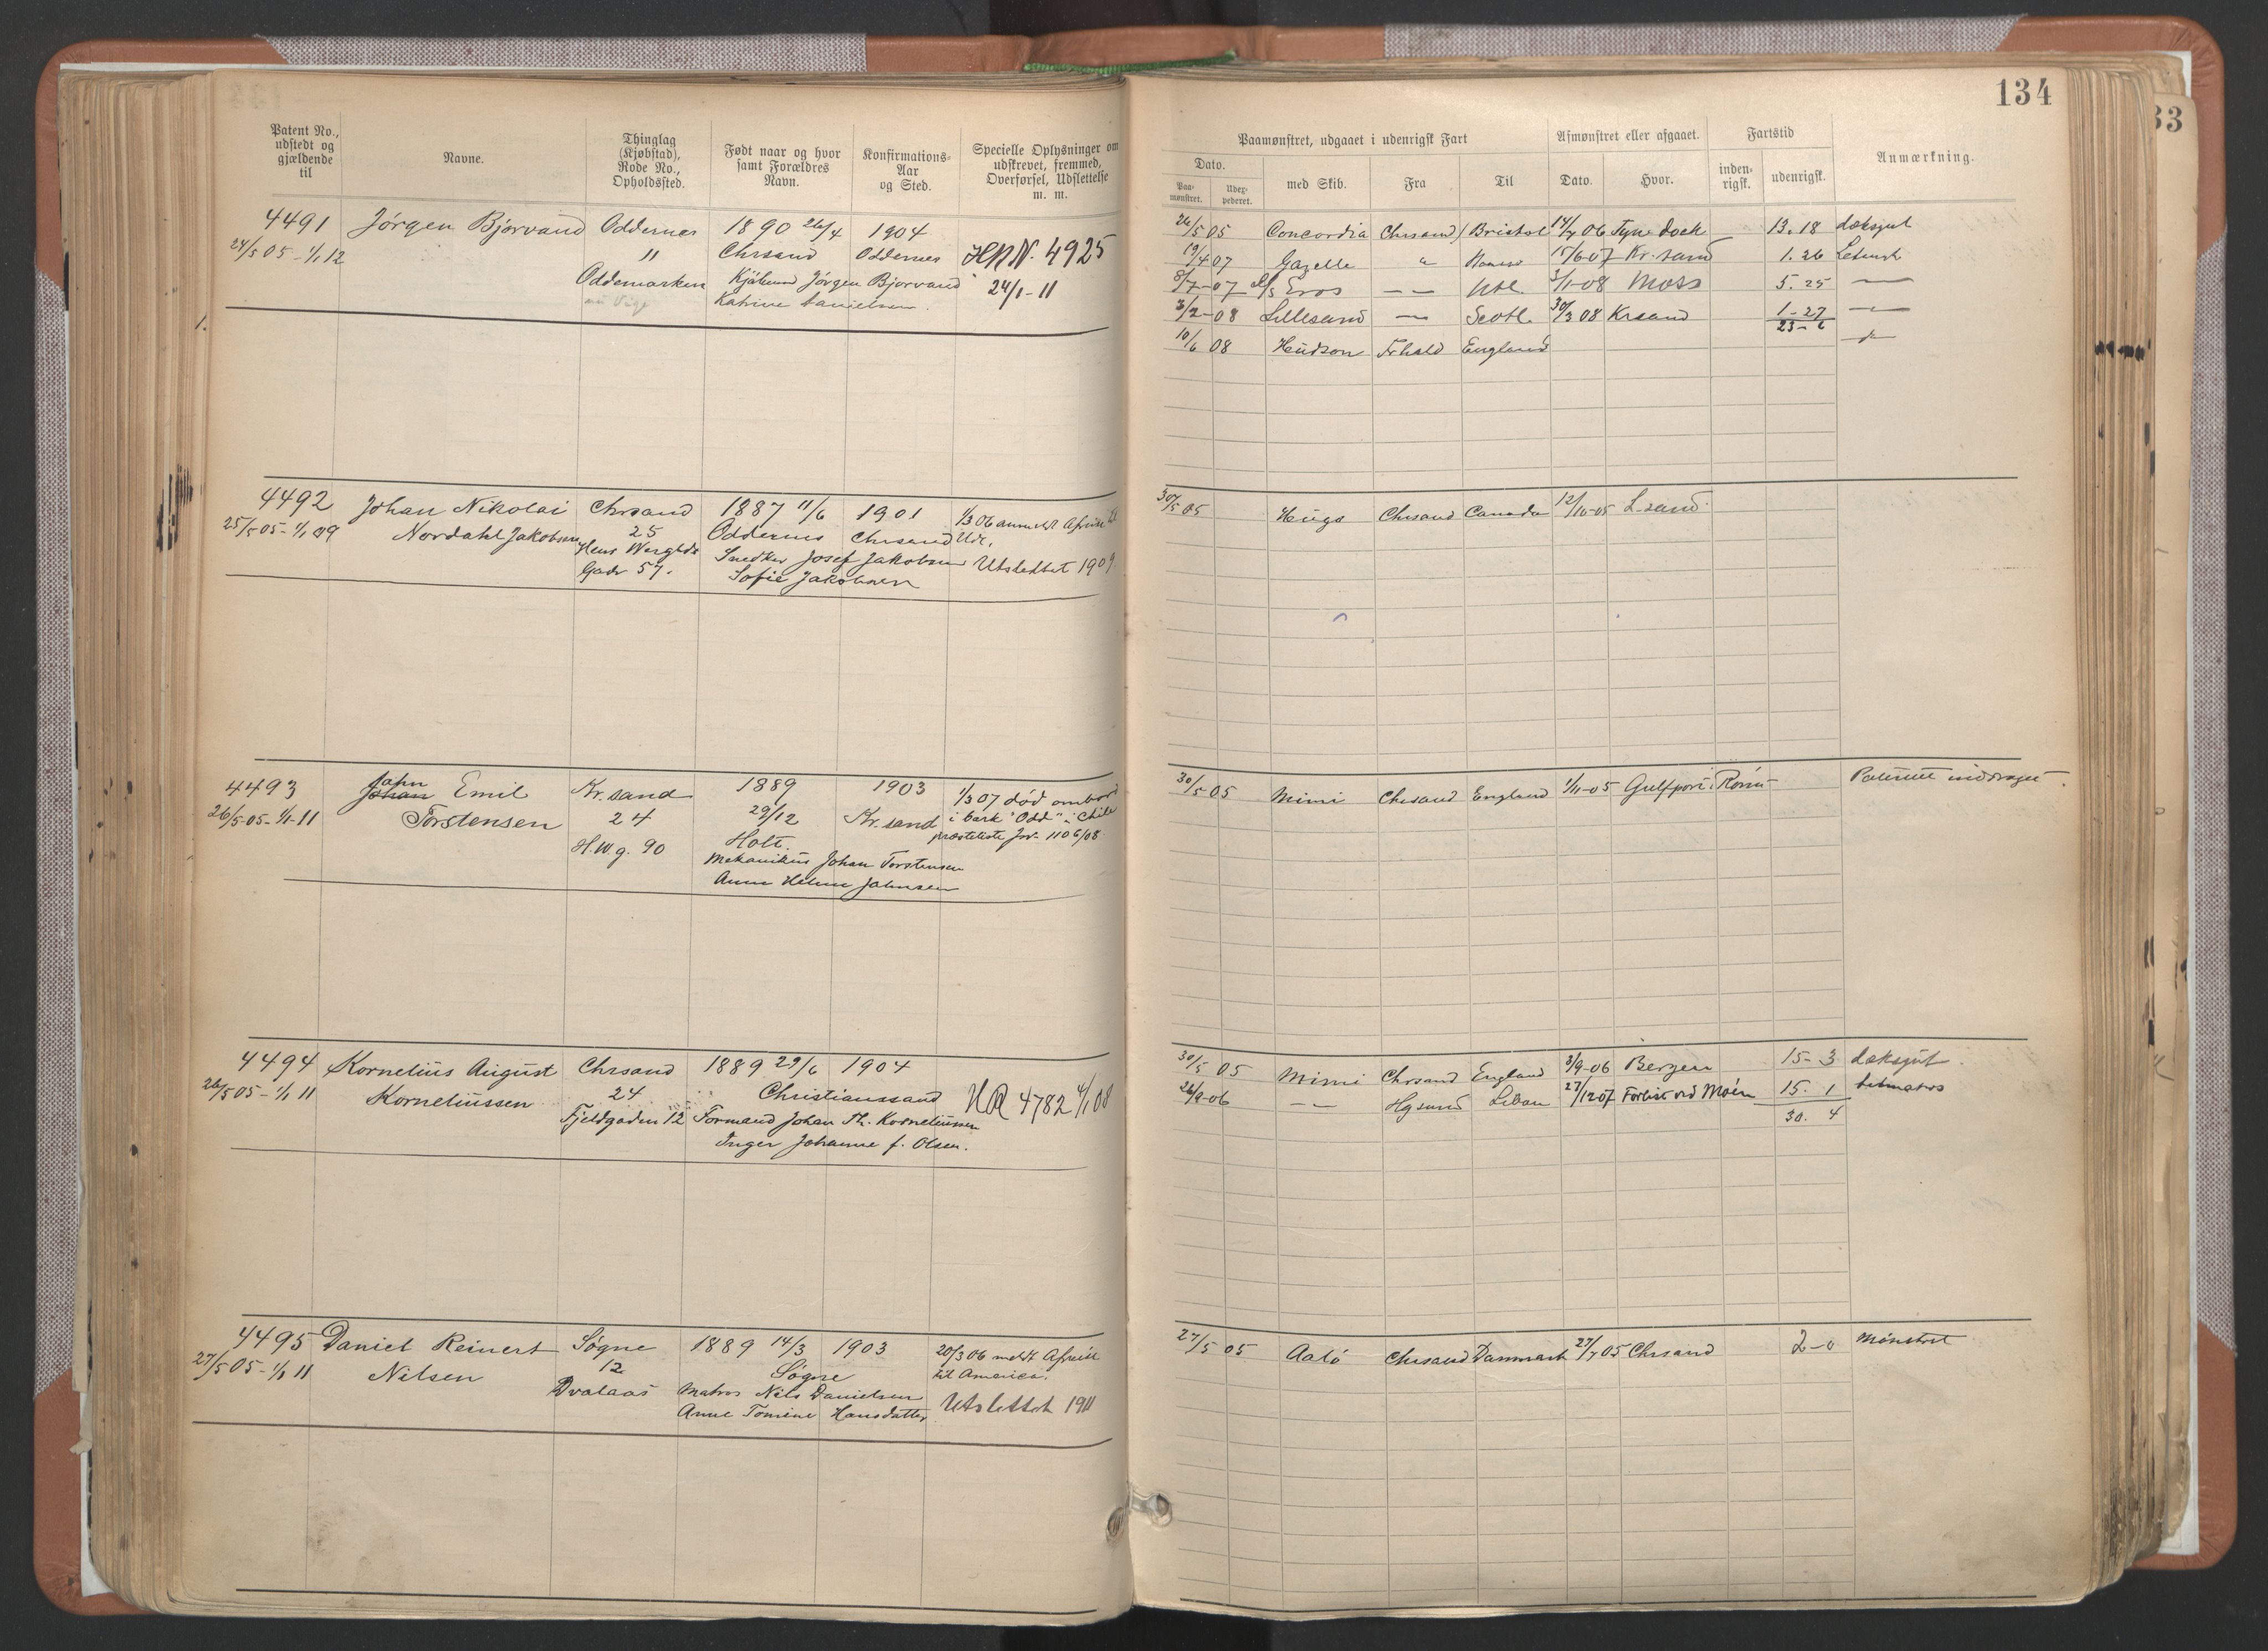 134
33
Patent No., udstedt og gjældende til
Navne.
Thinglag (Kjøbstad), Rode No., Opholdssted.
Født naar og hvor samt Forældres Navn.
Konfirmations-Aar og Sted.
Specielle Oplysninger om udskrevet, fremmed, Overførsel, Udslettelse m. m.
Paamønstret, udgaaet i udenrigsk Fart
Afmønstret eller afgaaet.
Fartstid
Anmærkning.
Dato.
Paa-mønstret.
med Skib.
Fra
Til
Dato.
Hvor.
inden-rigsk.
udenrigsk.
4491 Jørgen Bjørvand Oddernes 1890 26/4 1904
24/5 05 - 1/1 12 " Chrsand Oddernes HRN. 4925
Oddemarken Jørgen Bjorvand 24/1-11
Katrine Danielsen
26/5 05 Concordia Chrsand Bristol 14/7 06 Tyne dock 13. 18 dæksgut
19/4 07 Gazelle " 15/6 07 Kr.sand 1. 26 Letmatr
8/7-07 Eros — — Utl. 3/1-08 Moss 5. 25 —
3/2-08 Lillesand — Scotl. 30/3 08 Krsand 1-27 —
23-6
10/6 08 Hudson Frhald England
4492 Johan Nikolai Chrsand 1887 11/6 1901 1/3 06 anmeldt Afreise til
25/5-05- 1/1 09 Nordahl Jakobsen 25 Oddernes Chrsand Udl.
Henr Wergelds Snedker Josef Jakobsen Utslettet 1909
Gade 57. Sofie Jakobsen
30/5 05 Hugo Chrsand Canada 12/10-05 L.sand
4493 John Johan Emil Kr.sand 1889 1903 1/3 07 død ombord
26/5-05- 1/1-11 Torstensen 24 29/12 Kr.sand i bark "Odd" i Chile
H.W.g. 90 Holt. Jnr. 1106/08
Mekanikus Johan Torstensen
Anne Helene Jahnsen
30/5 05 Mimi Chrsand England 1/11-05 Gulfport Rømt Patentet inddraget.
4494 Kornelius August Chrsand 1889 29/6 1904
26/5 05 - 1/1 11 Korneliussen 24 Christianssand HR 4782 4/1 08
Fjeldgaden 12 Formand Johan Th. Korneliussen
Inger Johanne f. Olsen.
30/5 05 Mimi Chrsand England 3/9-06 Bergen 15- 3 dæksgut
26/9-06 — — Hgsund Libau 27/12 07 Forlist ved Møen 15. 1 letmatros
30. 4
4495 Daniel Reinert Søgne 1889 14/3 1903 20/3 06 meldt Afreise
27/5 05 - 1/1 11 Nilsen 12 Søgne til America.
Dvalaas Matros Nils Danielsen Utslettet 1911
Anne Tomine Hansdatter
27/5 05 Aalo Chrsand Danmark 27/7 05 Chrsand 2-0 Mønstret